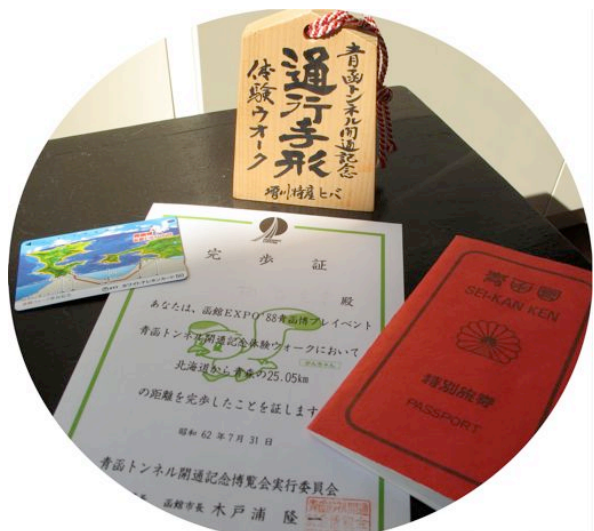 青函トンネル開通記念
通行手形
体験ウオーク
増川特産ヒバ
完歩証
殿
あなたは、函館EXPO'88青函博プレイベント
青函トンネル開通記念体験ウォークにおいて
北海道から青森の25.05km
の距離を完歩したことを証します
昭和62年7月31日
青函トンネル開通記念博覧会実行委員会
函館市長 木戸浦 隆一
SEI-KAN KEN
特別旅券
PASSPORT